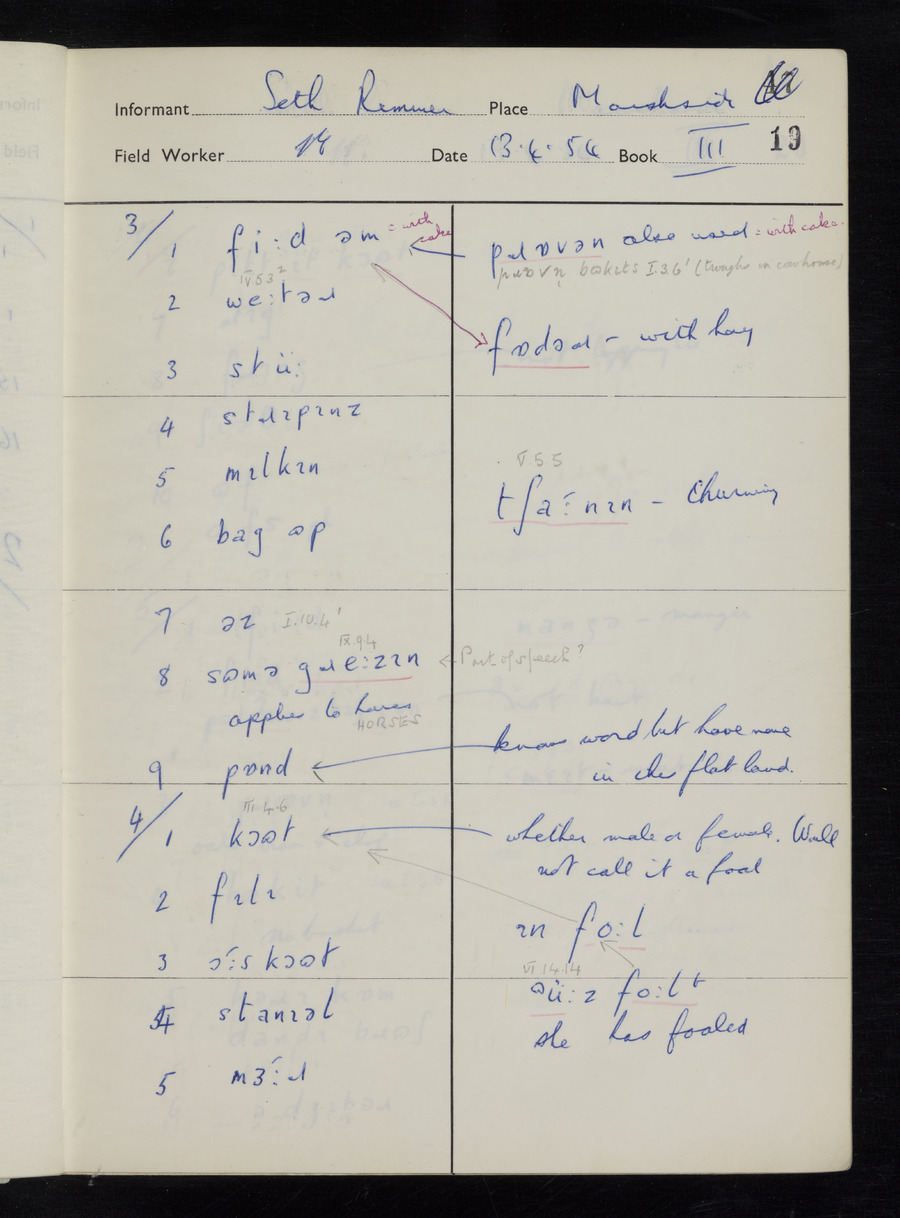 Informant Seth Rimmer Place Marshside
Field Worker Date 13.4.54 Book III 19
3/ 1 fiːd əm = with cake
pɹɒvən also used = with cake.
pɹɒvn̩ baskets I.3.6' (troughs in cowhouse)
IV 5 3²
2 weːtəɹ
fɒdəɹ – with hay
3 stüː
4 stɹɪpɪnz
5 mɪlkɪn
V.5.5
tʃaːˊnɪn – Churning
6 bag ɒp
7 əz I.10.4'
IX.9.4
8 sɒmə gɹeːzɪn Part of speech?
applies to horses
HORSES
9 pɒnd
know word but have none
in the flat land.
III.4.6
4/ 1 kɔɒt
whether male or female. Would
not call it a foal
2 fɪlɪ
ɪn foːl
3 ɔːˊs kɔɒt
VI 14.14
ɒüːz foːlt
4 stanɪəl
she has foaled
5 mɜːˊɹ